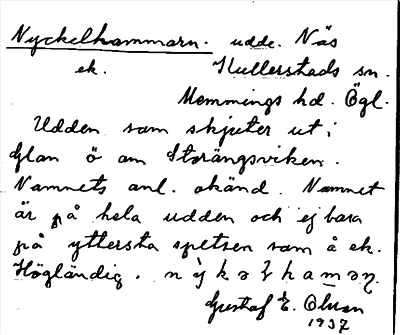 Nyckelhammarn. udde. Näs
ek. Kullerstads sn.
Memmings hd. Ögl.
Udden som skjuter ut i
Glan ö om Storängsviken.
Namnets anl. okänd. Namnet
är på hela udden och ej bara
på yttersta spetsen som å ek.
Högländig.
Gustaf E. Olsson
1937